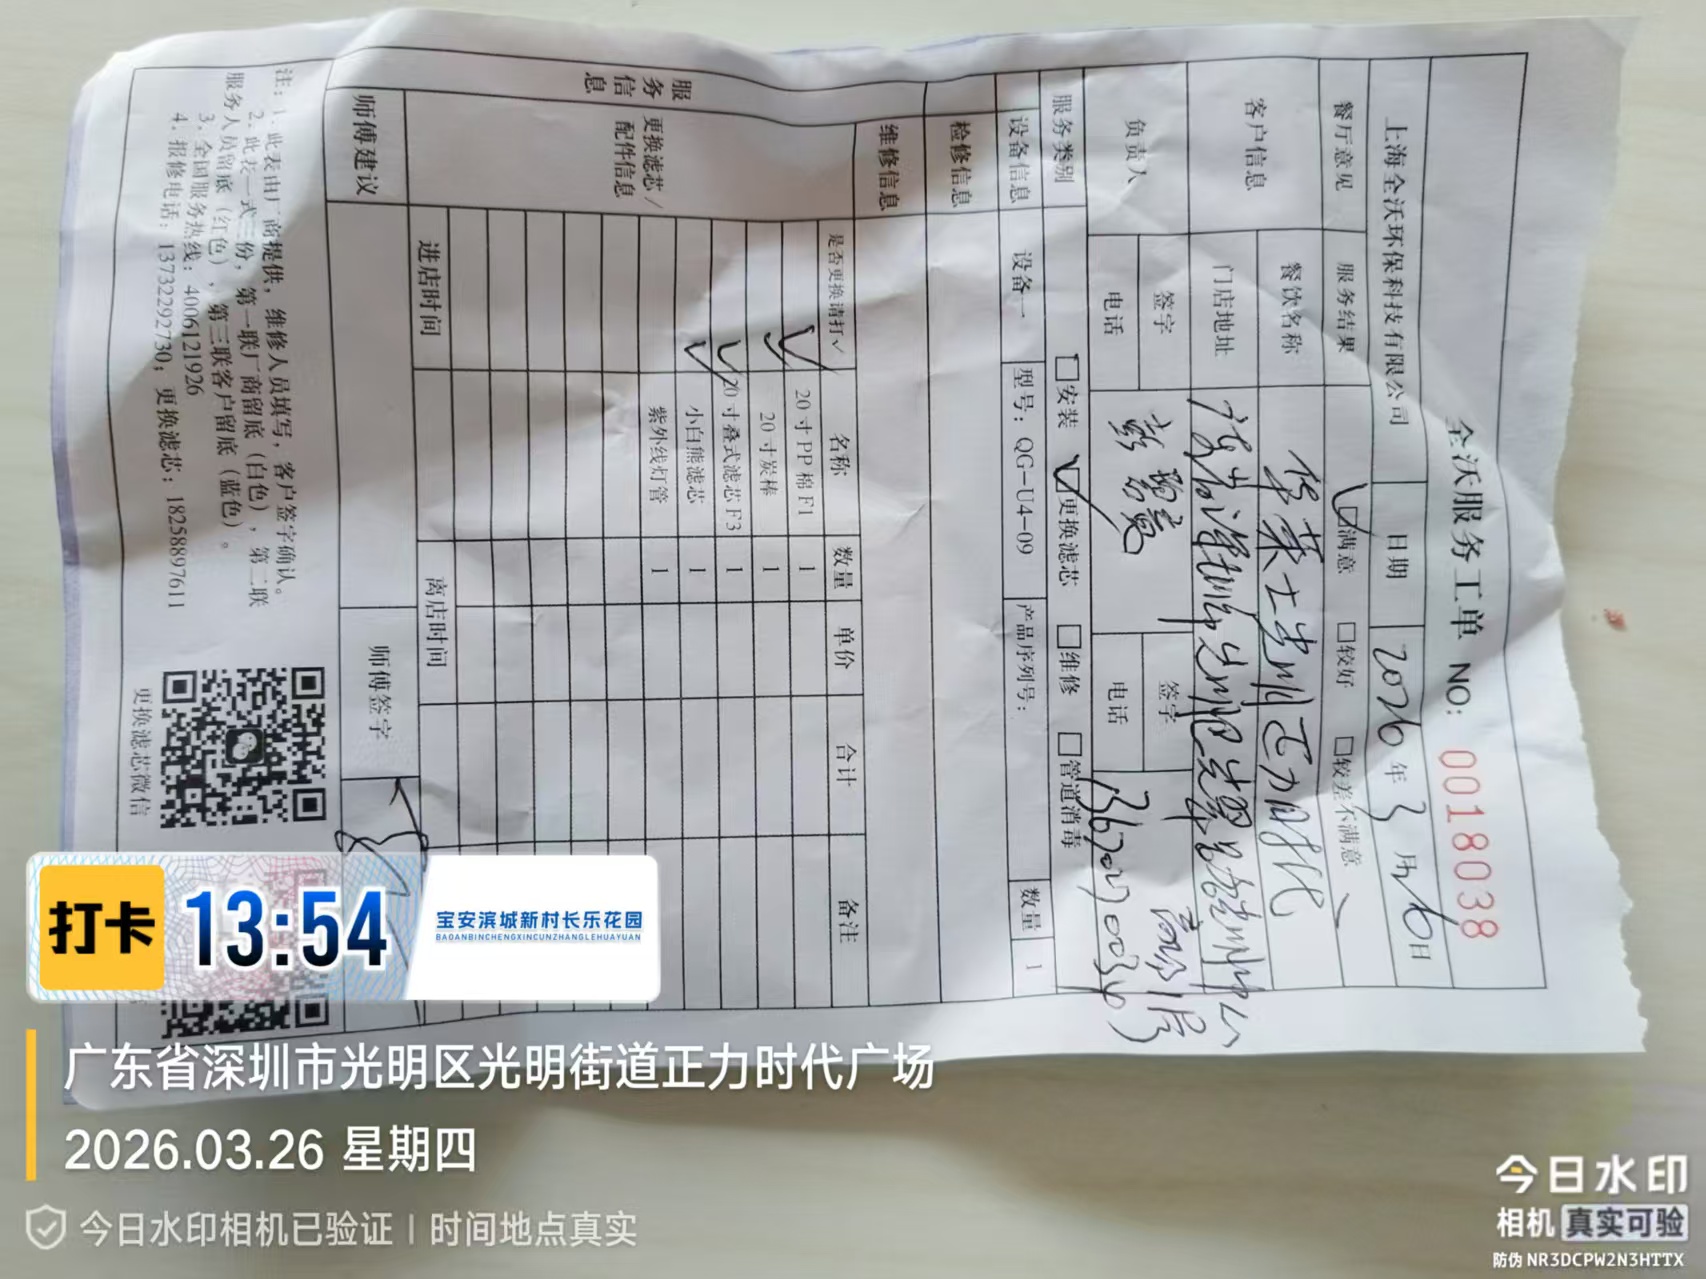 全沃服务工单 NO: 00180038
上海全沃环保科技有限公司 日期 2026年3月26日
餐厅意见 服务结果 ☑满意 □较好 □较差不满意
客户信息 餐饮名称 深圳正力时代
门店地址
负责人 签字 签字
电话 电话
服务类别 □安装 ☑更换滤芯 □维修 □管道消毒
设备信息 设备一 型号：QG-U4-09 产品序列号： 数量 1
检修信息
维修信息
服务信息
更换滤芯/配件信息
是否更换请打✓ 名称 数量 单价 合计 备注
✓ 20寸PP棉F1 1
✓ 20寸炭棒 1
✓ 20寸叠式滤芯F3 1
✓ 小白熊滤芯 1
紫外线灯管 1
进店时间 离店时间
师傅建议 师傅签字
注：1. 此表由厂商提供，维修人员填写，客户签字确认。
2. 此表一式三份，第一联厂商留底（白色），第二联
服务人员留底（红色），第三联客户留底（蓝色）。
3. 全国服务热线：4006121926
4. 报修电话：13732292730；更换滤芯：18258897611
更换滤芯微信
打卡 13:54 宝安滨城新村长乐花园
BAOANBINCHENGXINCUNZHANGLEHUAYUAN
广东省深圳市光明区光明街道正力时代广场
2026.03.26 星期四
今日水印相机已验证 | 时间地点真实
今日水印
相机 真实可验
防伪 NR3DCPW2N3HTTX